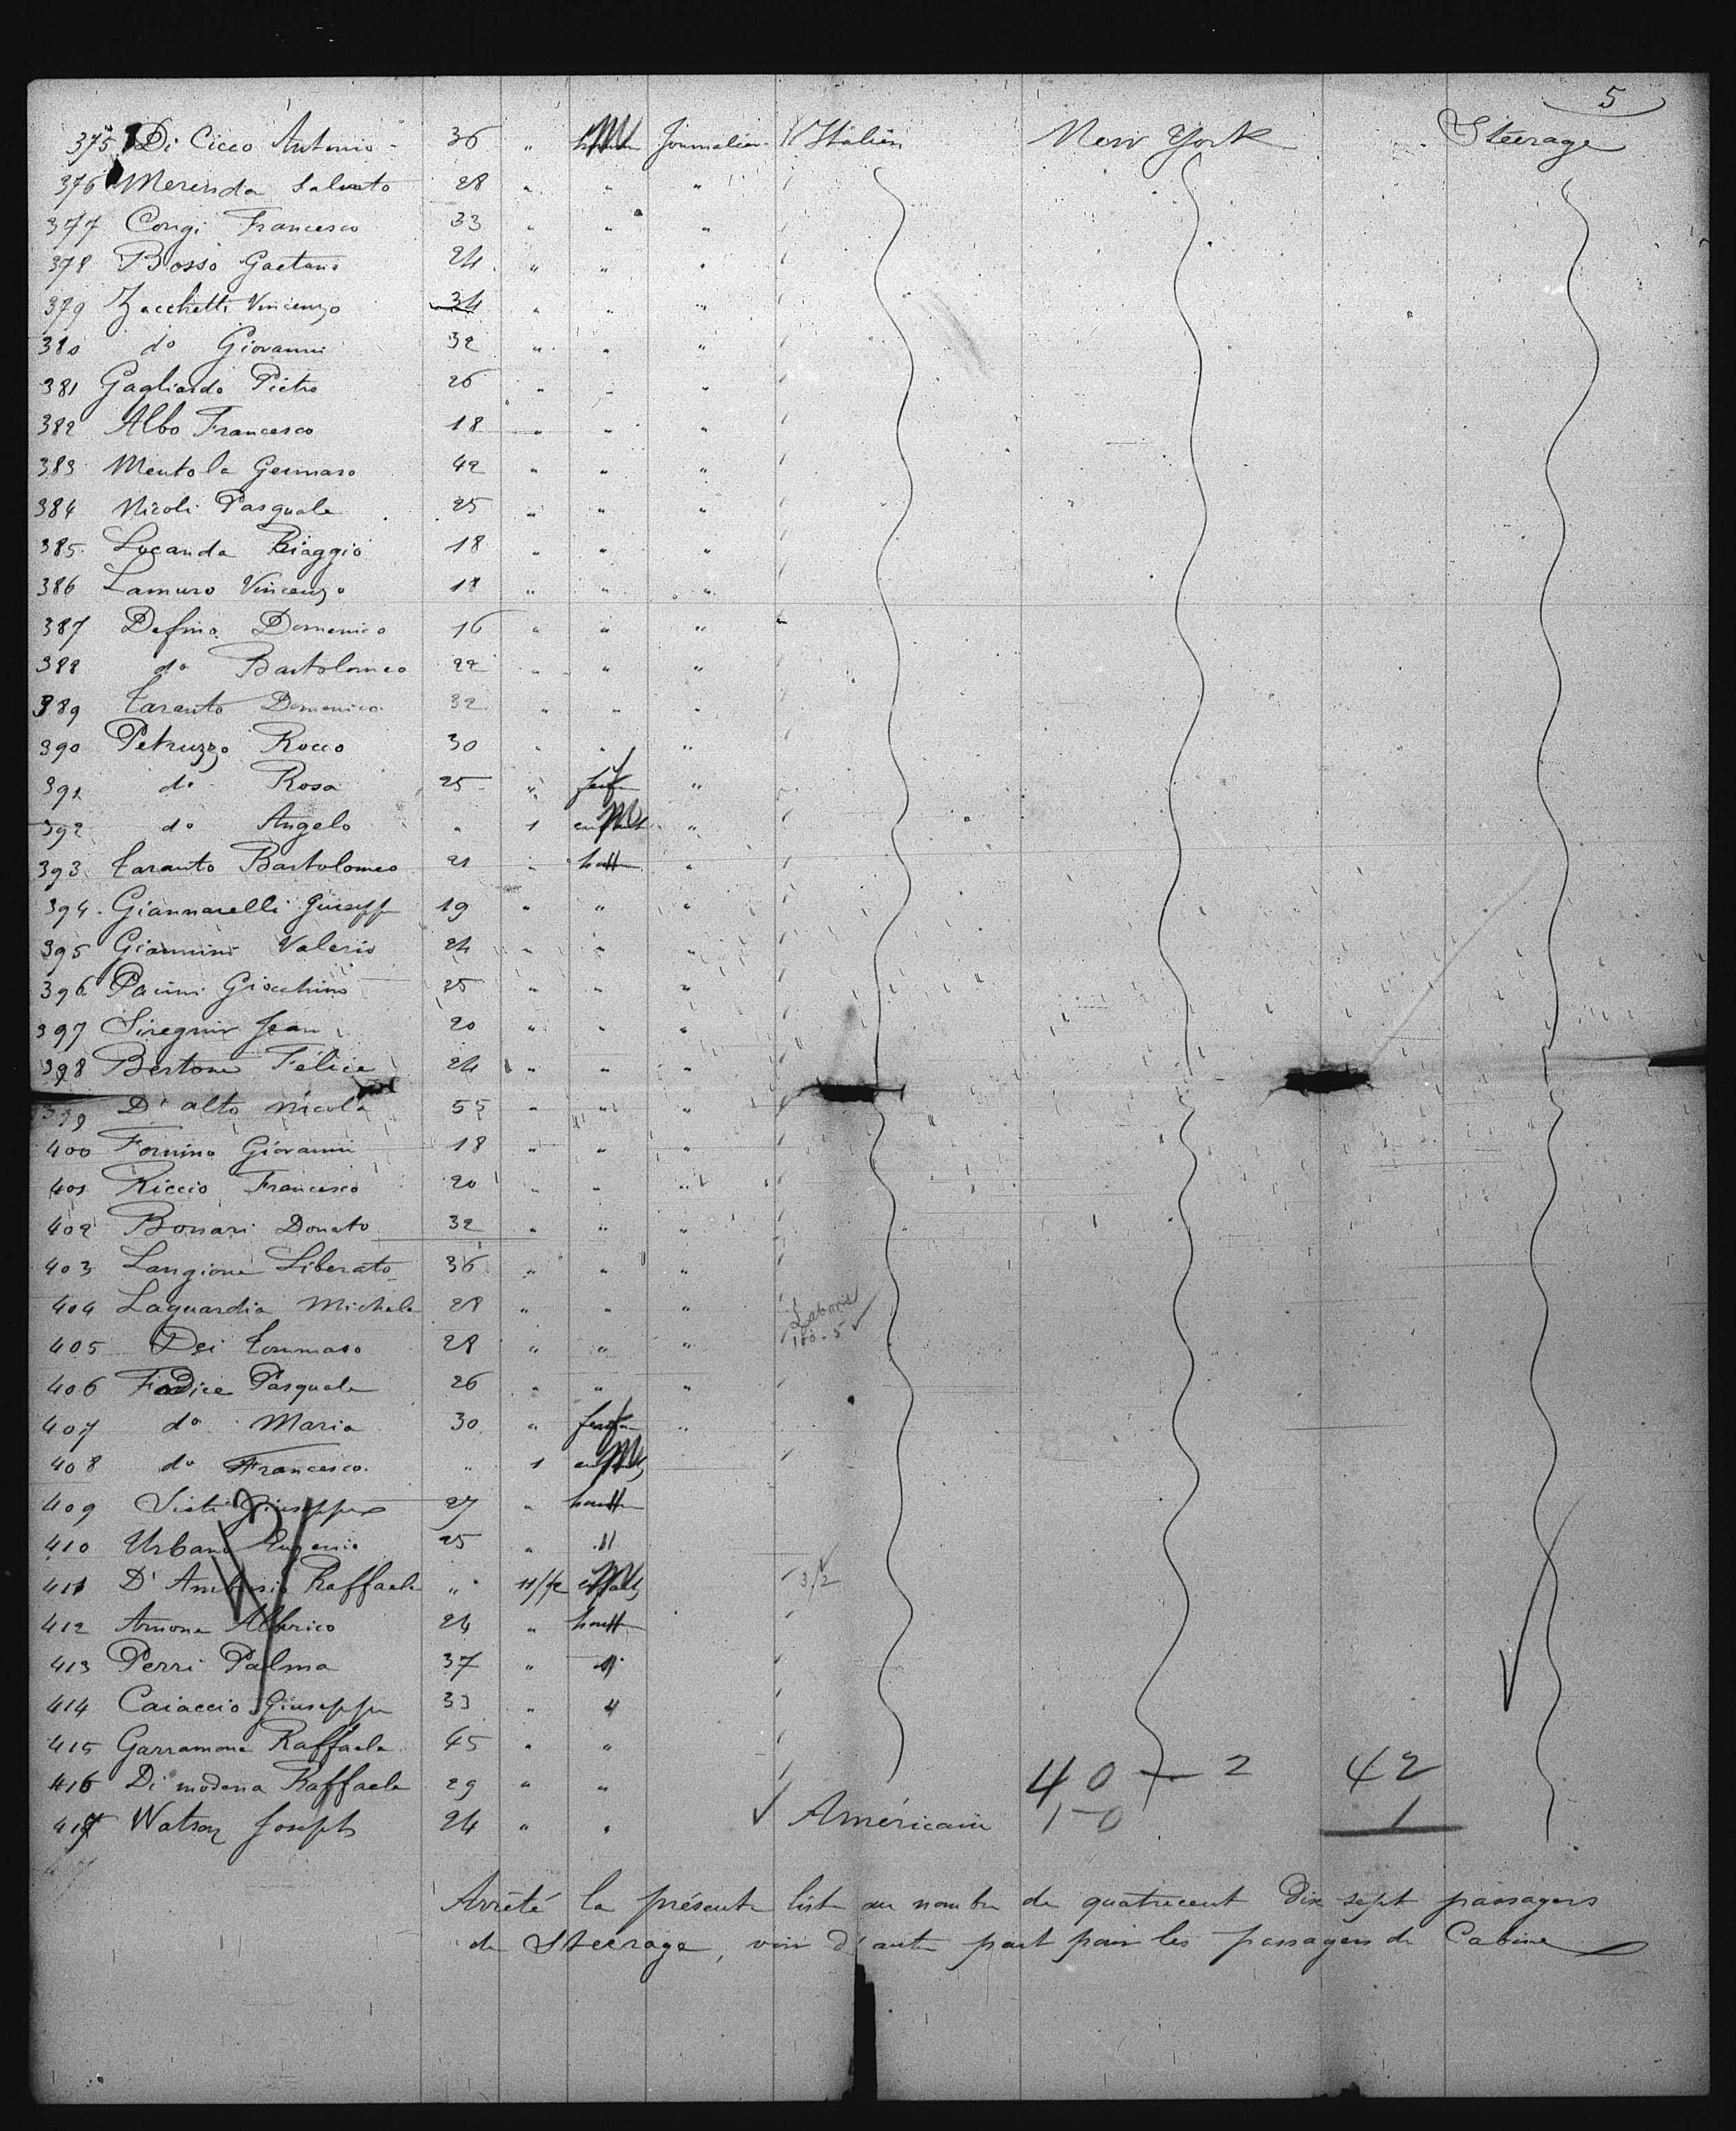 5
375 Di Cicco Antonio 36 " Journalier Italien New York Steerage
376 Merenda Salvato 28 " " "
377 Congi Francesco 33 " " "
378 Bosso Gaetano 24 " " "
379 Zacchetti Vincenzo 34 " " "
380 do Giovanni 32 " " "
381 Gagliardo Pietro 26 " " "
382 Albo Francesco 18 " " "
383 Mentola Gennaro 42 " " "
384 Nicoli Pasquale 25 " " "
385 Locanda Biaggio 18 " " "
386 Lamuro Vincenzo 18 " " "
387 Defino Domenico 16 " " "
388 do Bartolomeo 22 " " "
389 Taranto Domenico 32 " " "
390 Petruzzo Rocco 30 " " "
391 do Rosa 25 " f "
392 do Angelo " 1 M "
393 Taranto Bartolomeo 21 " "
394 Giannarelli Giuseppe 19 " " "
395 Giannini Valerio 24 " " "
396 Pacini Giocchino 25 " " "
397 Jean 20 " " "
398 Bertone Félice 24 " " "
399 D'alto Nicola 55 " " "
400 Fornino Giovanni 18 " " "
401 Riccio Francesco 20 " " "
402 Bonari Donato 32 " " "
403 Langione Liberato 36 " " "
404 Laguardia Michele 28 " " "
405 Dei Tommaso 28 " " "
406 Fodice Pasquale 26 " " "
407 do Maria 30 " f "
408 do Francesco " 1 M
409 Sisti Giuseppe 27 "
410 Urbano Eugenio 25 " "
411 D'Ambrosio Raffaele " 11/12 M
412 Arnone Alberico 24 "
413 Perri Palma 37 " "
414 Caiaccio Giuseppe 33 " "
415 Garramone Raffaele 45 " "
416 Di modena Raffaele 29 " " 40 2 42
417 Watson Joseph 24 " " Américain 1 0 1
Arrêté la présente liste au nombre de quatrecent dix sept passagers
de Steerage, voir d'autre part pour les passagers de Cabine